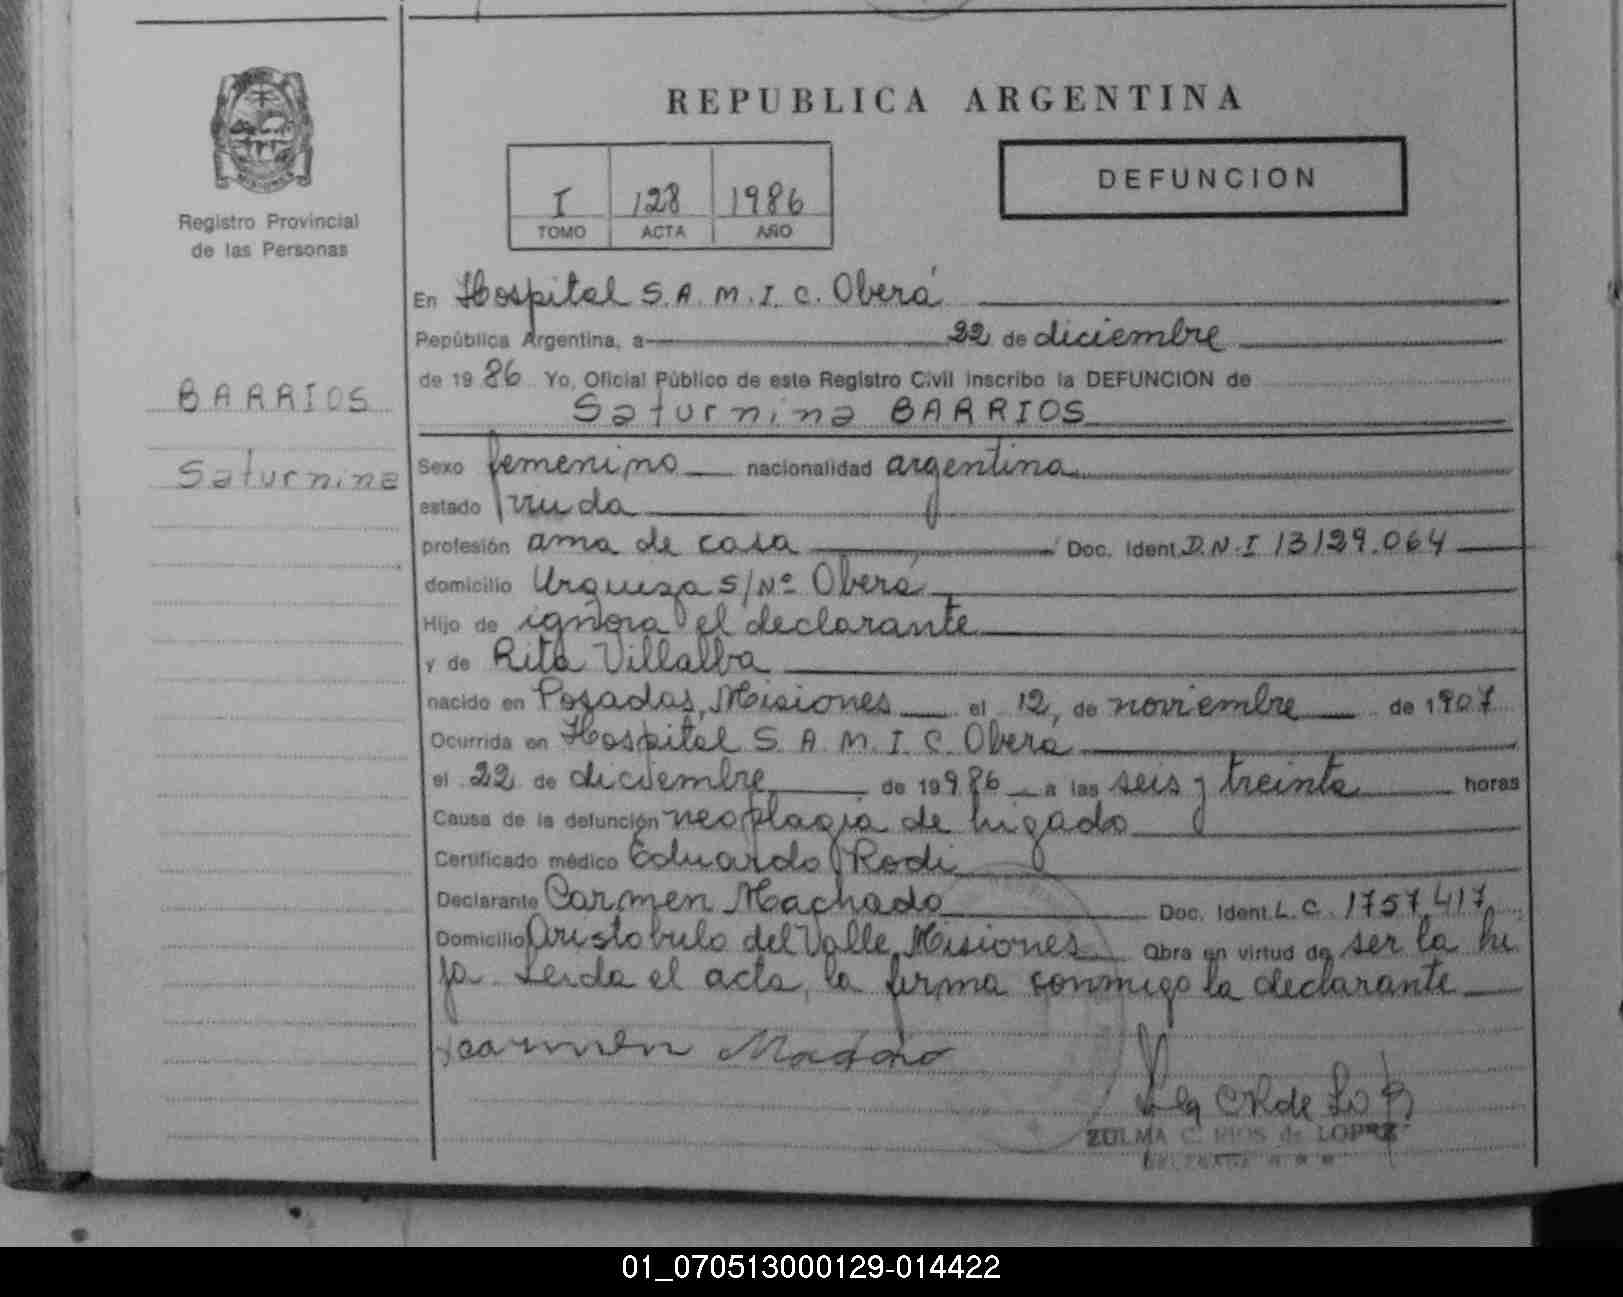 REPUBLICA ARGENTINA
DEFUNCION
I 128 1986
TOMO ACTA AÑO
MISIONES
Registro Provincial
de las Personas
BARRIOS
Saturnina
En Hospital S.A.M.I.C. Oberá
República Argentina, a 22 de diciembre
de 1986 Yo, Oficial Público de este Registro Civil inscribo la DEFUNCION de
Saturnina BARRIOS
Sexo femenino nacionalidad argentina
estado viuda
profesión ama de casa Doc. Ident. D.N.I 13129.064
domicilio Urquiza S/Nº Oberá
Hijo de ignora el declarante
y de Rita Villalba
nacido en Posadas, Misiones el 12, de noviembre de 1907
Ocurrida en Hospital S.A.M.I.C. Obera
el 22 de diciembre de 1986 a las seis y treinta horas
Causa de la defunción neoplagia de higado
Certificado médico Eduardo Rodi
Declarante Carmen Machado Doc. Ident. L.C. 1757.417
Domicilio Aristobulo del Valle, Misiones Obra en virtud de ser la hi
ja. Leida el acta, la firma conmigo la declarante
carmen
ZULMA C. RIOS de LOPEZ
01_070513000129-014422